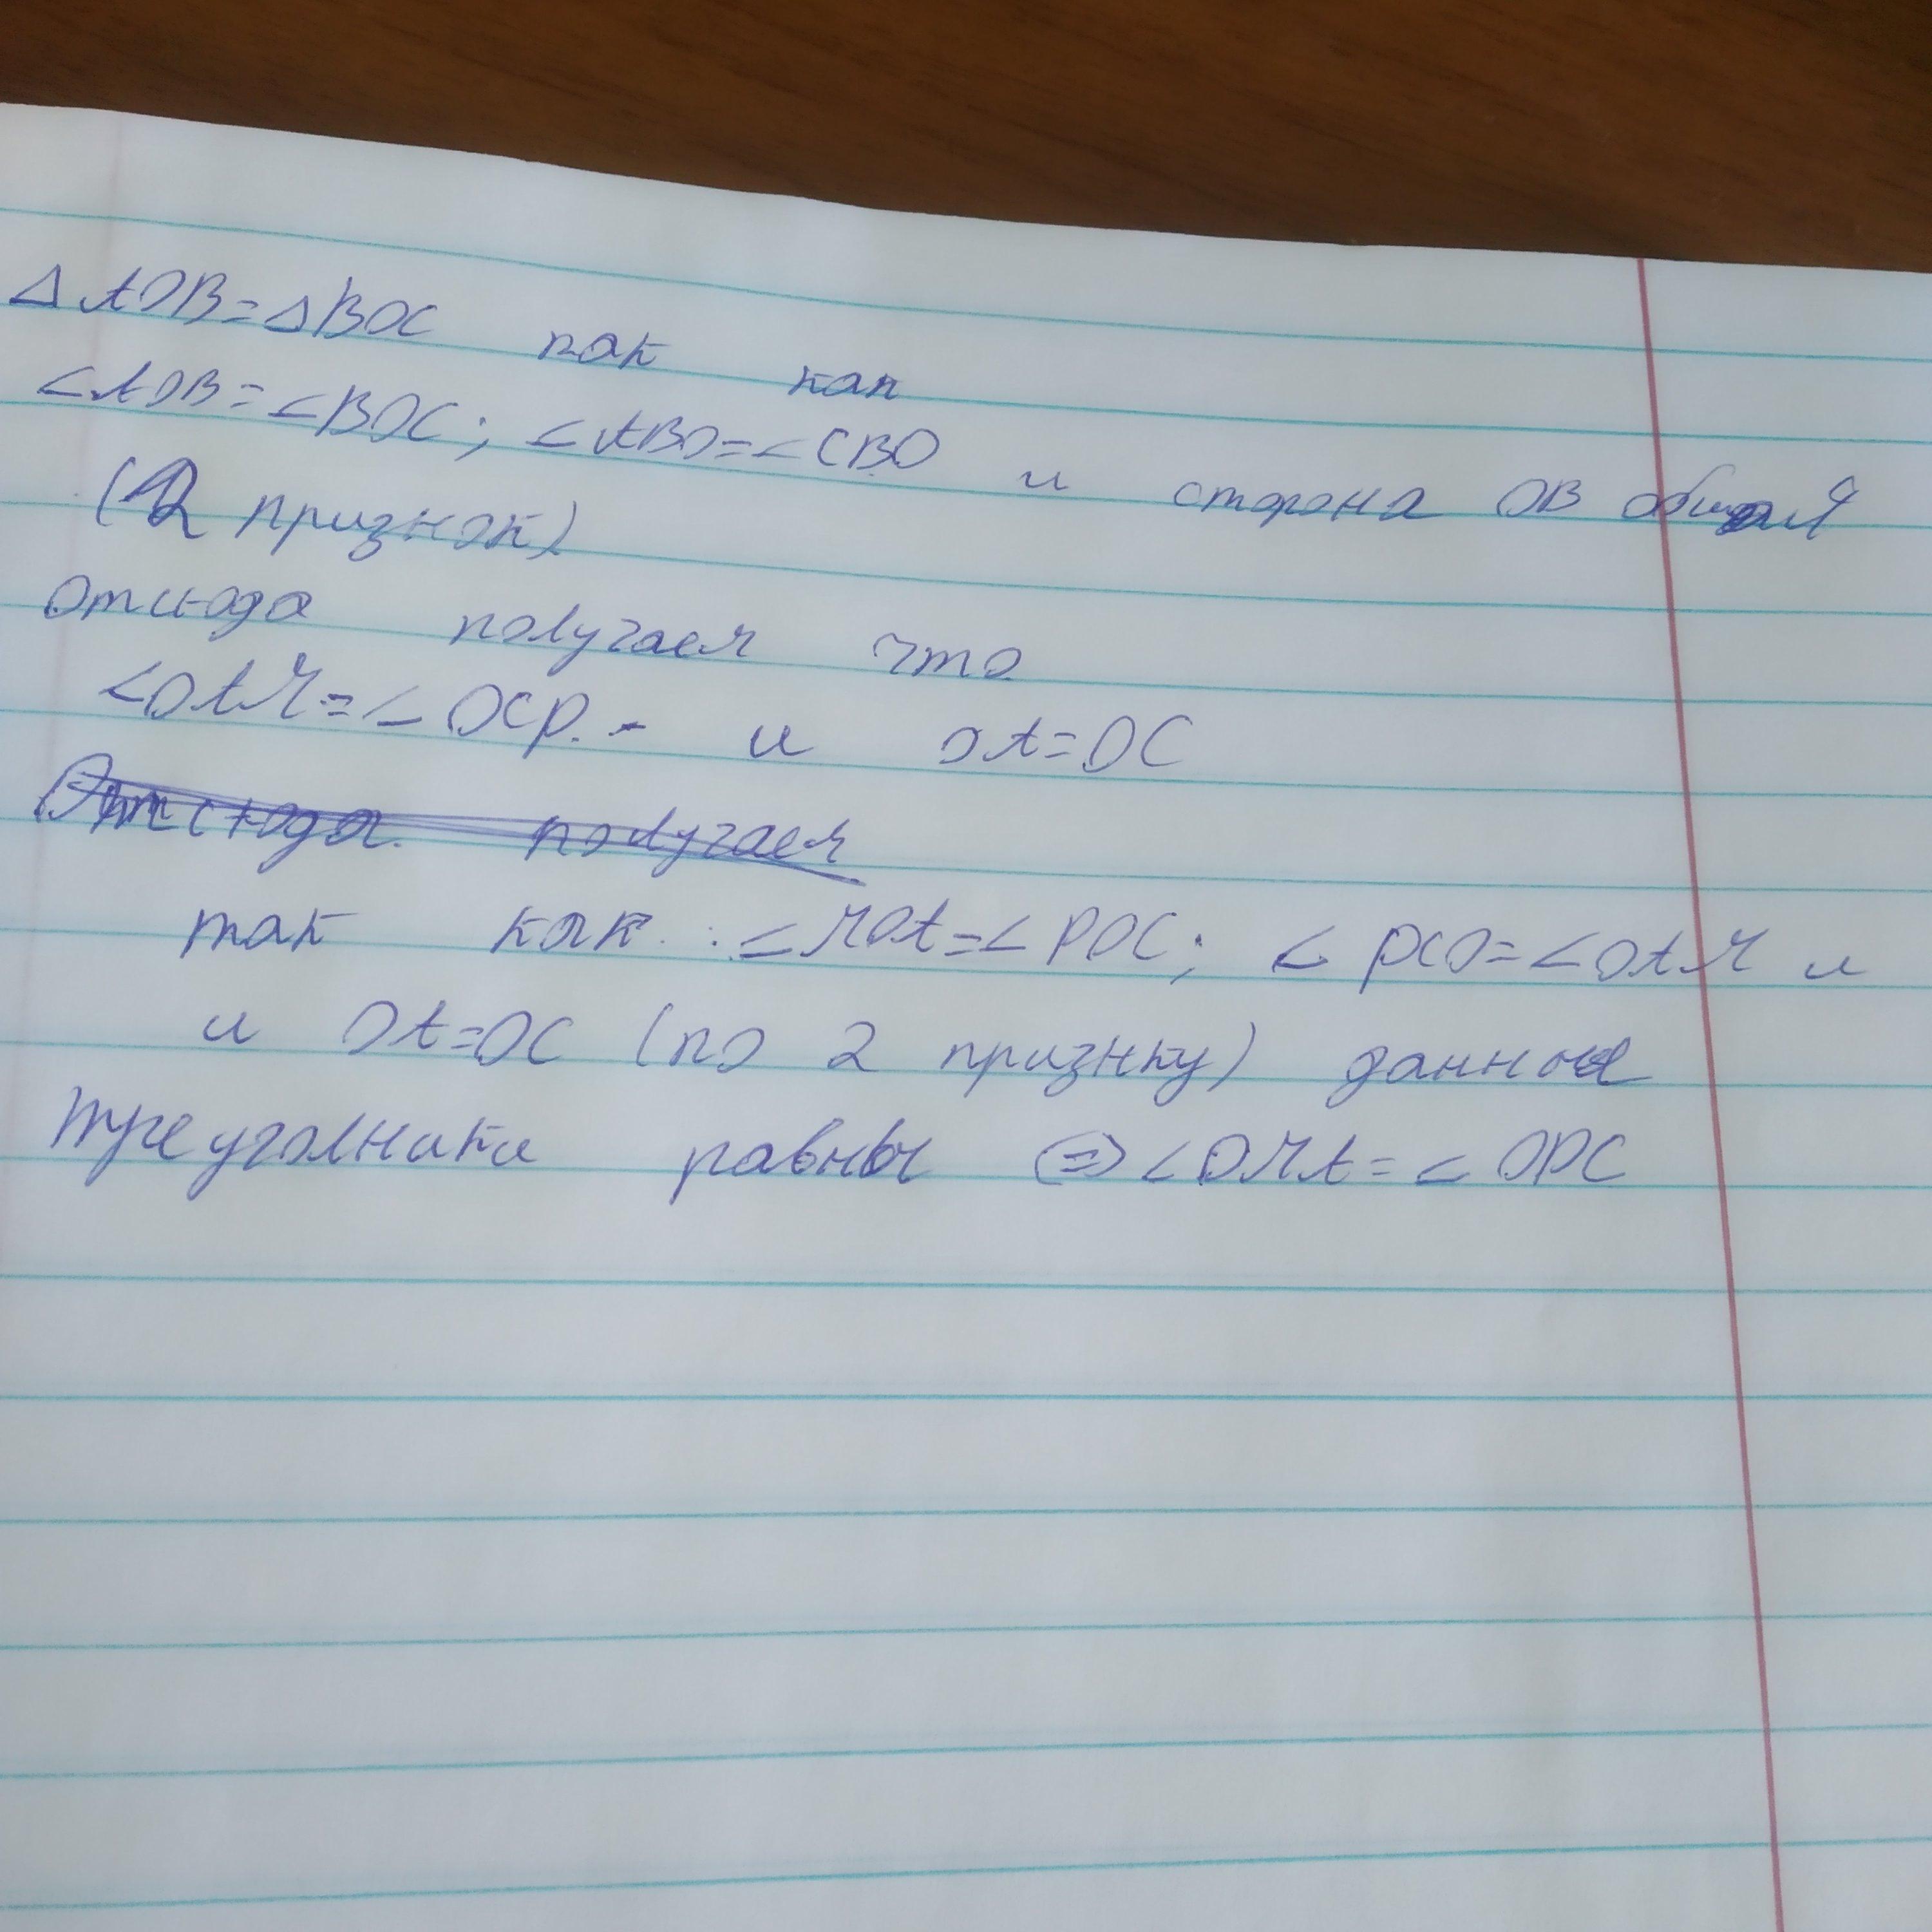 Δ AOB = Δ BOC так как
∠AOB = ∠BOC; ∠ABO = ∠CBO и сторона OB общая
(2 признак)
Отсюда получаем что
∠OAM = ∠OCP. - и OA = OC
Отсюда получаем
так как : ∠MOA = ∠POC; ∠PCO = ∠OAM и
и OA = OC (по 2 признку) данные
треуголники равны (=) ∠OMA = ∠OPC